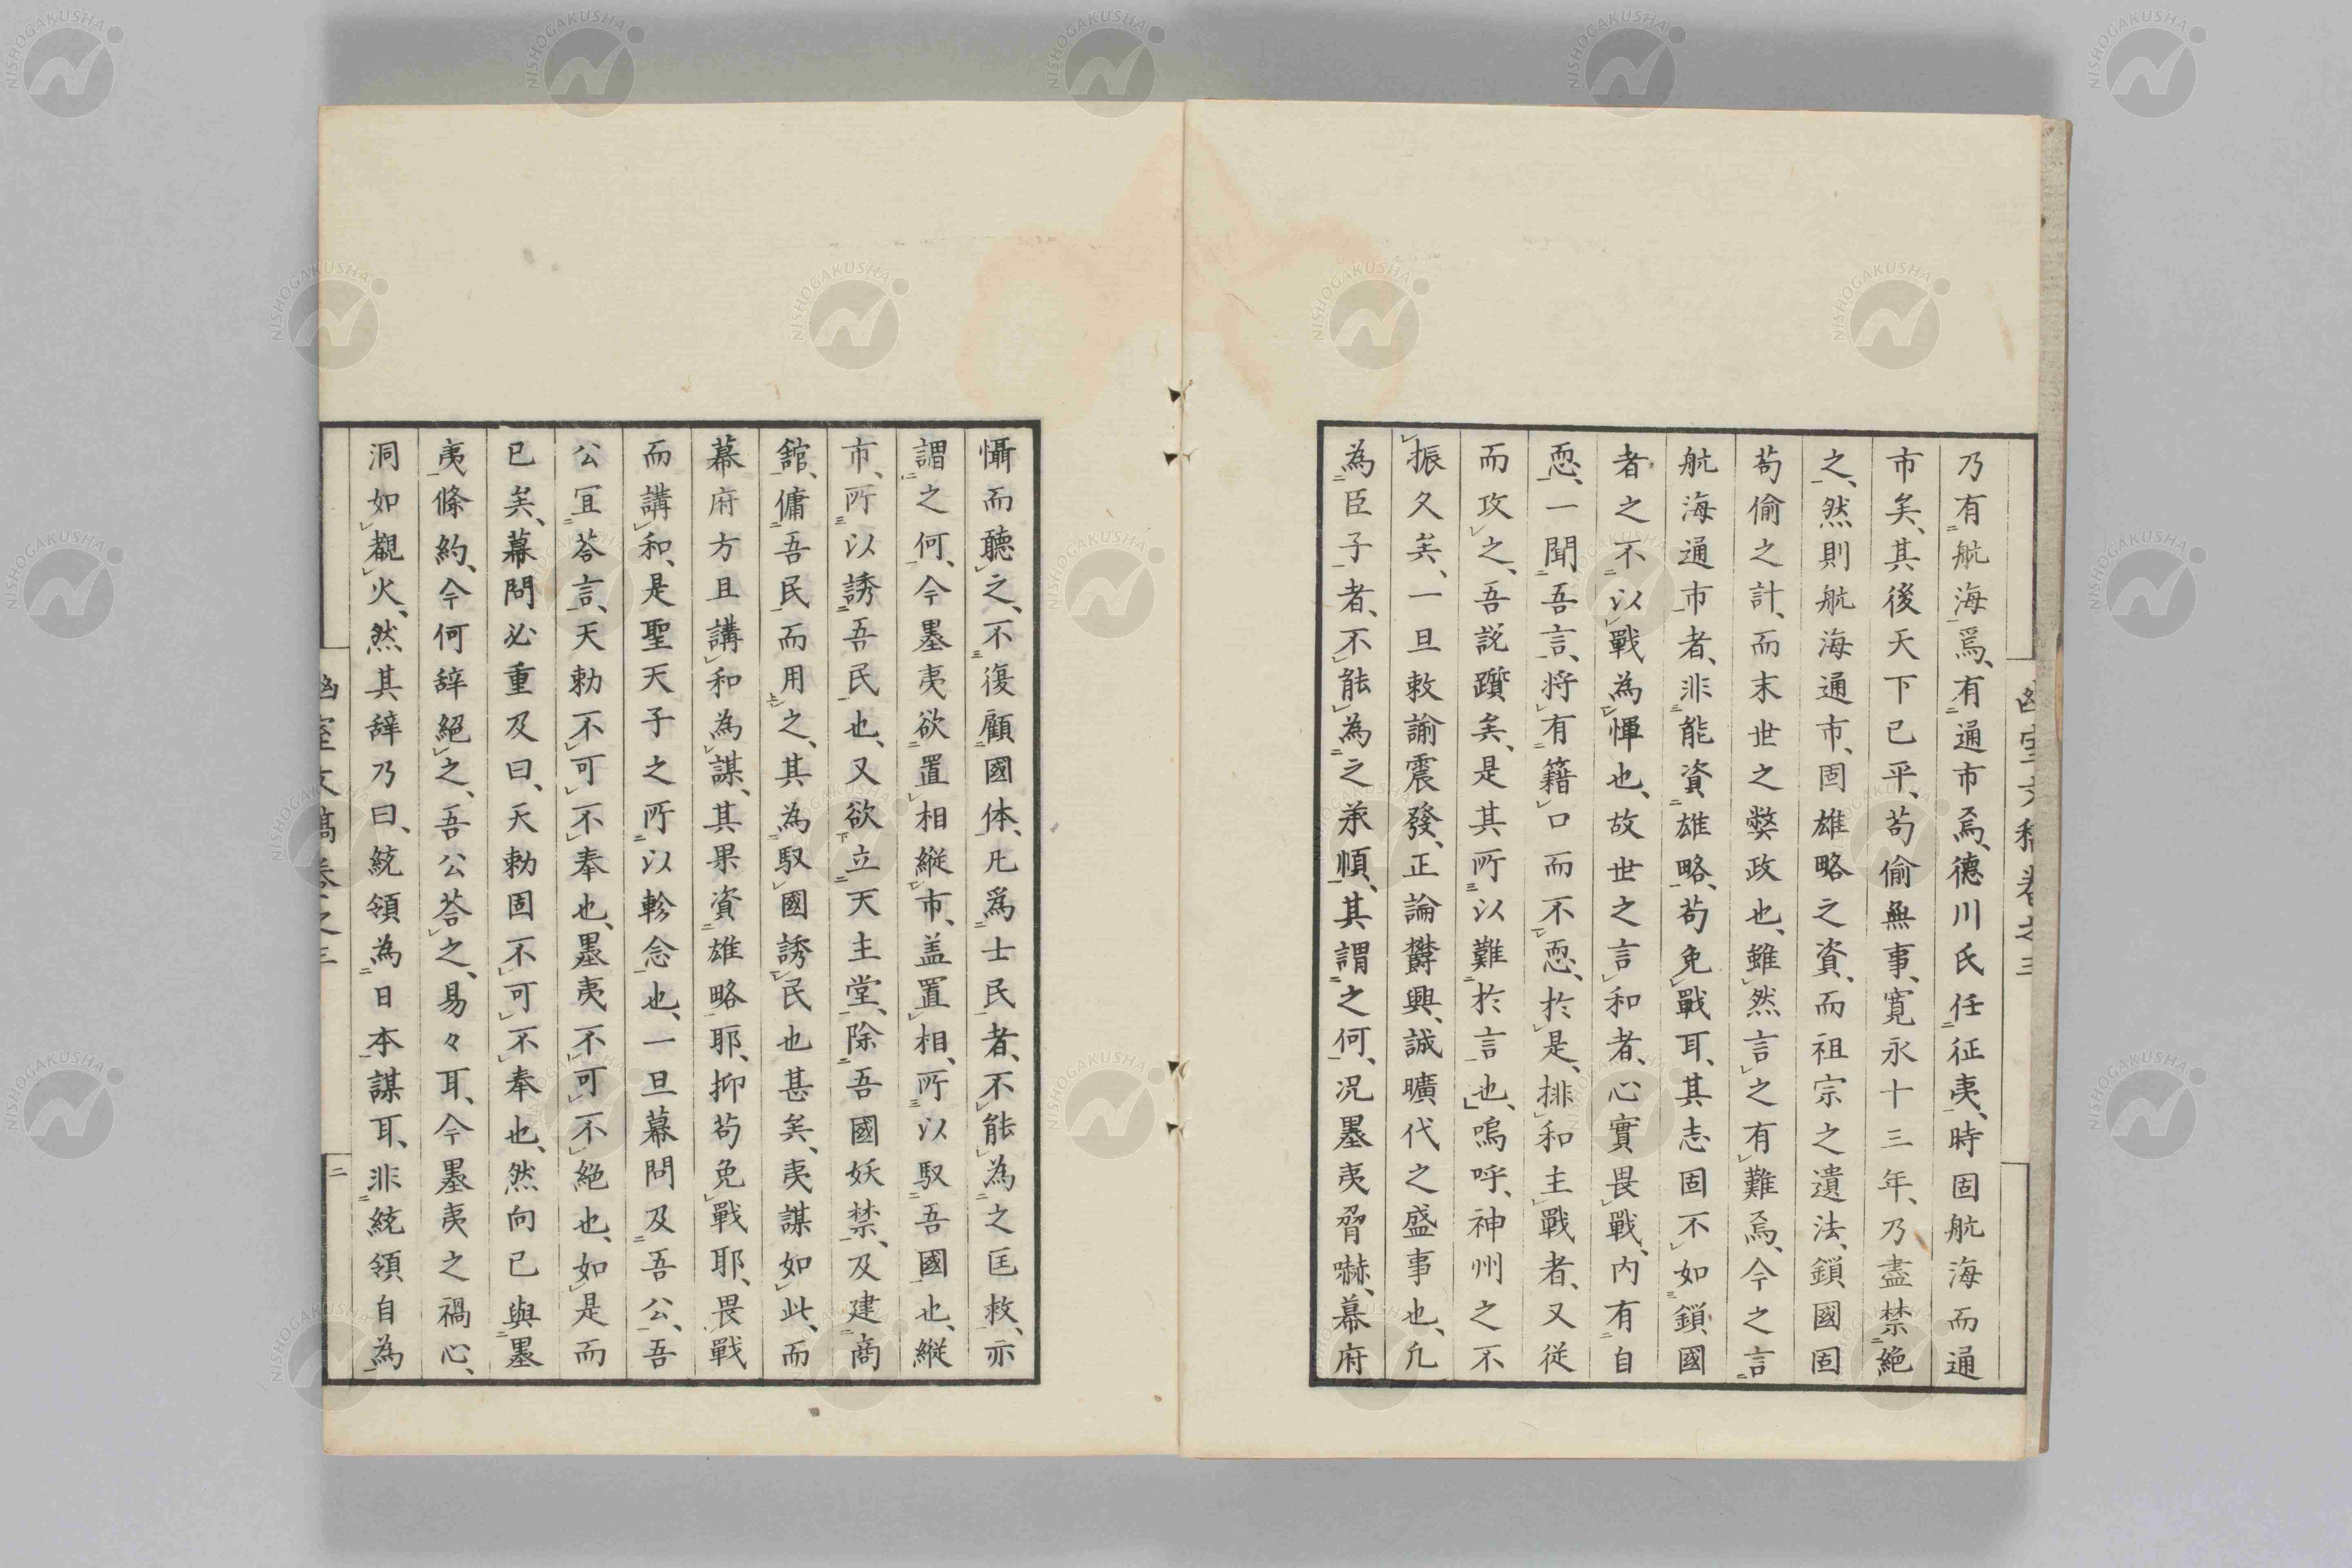 乃有航海焉、有通市焉、德川氏任征夷、時固航海而通
市矣、其後天下已平、苟偷無事、寬永十三年、乃盡禁絶
之、然則航海通市、固雄略之資、而祖宗之遺法、鎖國固
苟偷之計、而末世之弊政也、雖然言之有難焉、今之言
航海通市者、非能資雄略、苟免戰耳、其志固不如鎖國
者之不以戰為憚也、故世之言和者、心實畏戰、内有自
恧、一聞吾言、将有籍口而不恧、於是、排和主戰者、又従
而攻之、吾説躓矣、是其所以難於言也、嗚呼、神州之不
振久矣、一旦敕諭震發、正論欝興、誠曠代之盛事也、凢
為臣子者、不能為之承順、其謂之何、况墨夷脅嚇、幕府
懾而聽之、不復顧國体、凢爲士民者、不能為之匡救、亦
謂之何、今墨夷欲置相縱市、盖置相、所以馭吾國也、縱
市、所以誘吾民也、又欲立天主堂、除吾國妖禁、及建商
舘、傭吾民而用之、其為馭國誘民也甚矣、夷謀如此、而
幕府方且講和為謀、其果資雄略耶、抑苟免戰耶、畏戰
而講和、是聖天子之所以軫念也、一旦幕問及吾公、吾
公宜荅言、天勅不可不奉也、墨夷不可不絶也、如是而
已矣、幕問必重及曰、天勅固不可不奉也、然向已與墨
夷條約、今何辞絕之、吾公荅之、易々耳、今墨夷之禍心、
洞如觀火、然其辞乃曰、統領為日本謀耳、非統領自為
幽室文稿卷之三
二
NISHOGAKUSHA